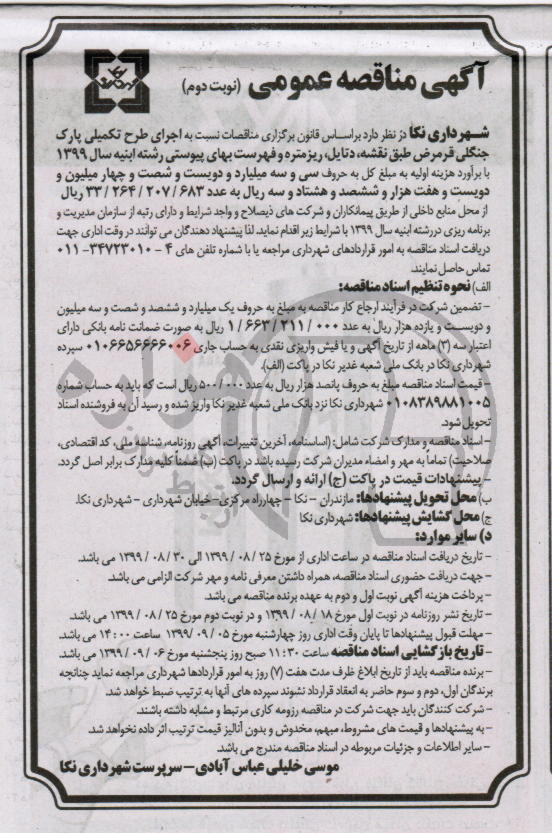 آگهی مناقصه عمومی (نوبت دوم)
شهرداری نکا در نظر دارد براساس قانون برگزاری مناقصات نسبت به اجرای طرح تکمیلی پارک
جنگلی قرمرض طبق نقشه، دتایل، ریزمتره و فهرست بهای پیوستی رشته ابنیه سال ۱۳۹۹
با برآورد هزینه اولیه به مبلغ کل به حروف سی و سه میلیارد و دویست و شصت و چهار میلیون و
دویست و هفت هزار و ششصد و هشتاد و سه ریال به عدد ۶۸۳ / ۲۰۷ / ۲۶۴ / ۳۳ ریال
از محل منابع داخلی از طریق پیمانکاران و شرکت های ذیصلاح و واجد شرایط و دارای رتبه از سازمان مدیریت و
برنامه ریزی دررشته ابنیه سال ۱۳۹۹ با شرایط زیر اقدام نماید. لذا پیشنهاد دهندگان می توانند در وقت اداری جهت
دریافت اسناد مناقصه به امور قراردادهای شهرداری مراجعه یا با شماره تلفن های ۴ - ۳۴۷۲۳۰۱۰ - ۰۱۱
تماس حاصل نمایند.
الف) نحوه تنظیم اسناد مناقصه:
- تضمین شرکت در فرآیند ارجاع کار مناقصه به مبلغ به حروف یک میلیارد و ششصد و شصت و سه میلیون
و دویست و یازده هزار ریال به عدد ۰۰۰ / ۲۱۱ / ۶۶۳ / ۱ ریال به صورت ضمانت نامه بانکی دارای
اعتبار سه (۳) ماهه از تاریخ آگهی و یا فیش واریزی نقدی به حساب جاری ۰۱۰۶۶۵۶۶۶۶۰۰۶ سپرده
شهرداری نکا در بانک ملی شعبه غدیر نکا در پاکت (الف).
- قیمت اسناد مناقصه مبلغ به حروف پانصد هزار ریال به عدد ۰۰۰ / ۵۰۰ ریال است که باید به حساب شماره
۰۱۰۸۳۸۹۸۸۱۰۰۵ شهرداری نکا نزد بانک ملی شعبه غدیر نکا واریز شده و رسید آن به فروشنده اسناد
تحویل شود.
- اسناد مناقصه و مدارک شرکت شامل: (اساسنامه، آخرین تغییرات، آگهی روزنامه، شناسه ملی، کد اقتصادی،
صلاحیت) تماماً به مهر و امضاء مدیران شرکت رسیده باشد در پاکت (ب) ضمناً کلیه مدارک برابر اصل گردد.
- پیشنهادات قیمت در پاکت (ج) ارائه و ارسال گردد.
ب) محل تحویل پیشنهادها: مازندران - نکا - چهارراه مرکزی - خیابان شهرداری - شهرداری نکا.
ج) محل گشایش پیشنهادها: شهرداری نکا
د) سایر موارد:
- تاریخ دریافت اسناد مناقصه در ساعت اداری از مورخ ۲۵ / ۰۸ / ۱۳۹۹ الی ۳۰ / ۰۸ / ۱۳۹۹ می باشد.
- جهت دریافت حضوری اسناد مناقصه، همراه داشتن معرفی نامه و مهر شرکت الزامی می باشد.
- پرداخت هزینه آگهی نوبت اول و دوم به عهده برنده مناقصه می باشد.
- تاریخ نشر روزنامه در نوبت اول مورخ ۱۸ / ۰۸ / ۱۳۹۹ و در نوبت دوم مورخ ۲۵ / ۰۸ / ۱۳۹۹ می باشد.
- مهلت قبول پیشنهادها تا پایان وقت اداری روز چهارشنبه مورخ ۰۵ / ۰۹ / ۱۳۹۹ ساعت ۱۴:۰۰ می باشد.
- تاریخ بازگشایی اسناد مناقصه ساعت ۱۱:۳۰ صبح روز پنجشنبه مورخ ۰۶ / ۰۹ / ۱۳۹۹ می باشد.
- برنده مناقصه باید از تاریخ ابلاغ ظرف مدت هفت (۷) روز به امور قراردادها شهرداری مراجعه نماید چنانچه
برندگان اول، دوم و سوم حاضر به انعقاد قرارداد نشوند سپرده های آنها به ترتیب ضبط خواهد شد.
- شرکت کنندگان باید جهت شرکت در مناقصه رزومه کاری مرتبط و مشابه داشته باشند.
- به پیشنهادها و قیمت های مشروط، مبهم، مخدوش و بدون آنالیز قیمت ترتیب اثر داده نخواهد شد.
- سایر اطلاعات و جزئیات مربوطه در اسناد مناقصه مندرج می باشد.
موسی خلیلی عباس آبادی - سرپرست شهرداری نکا